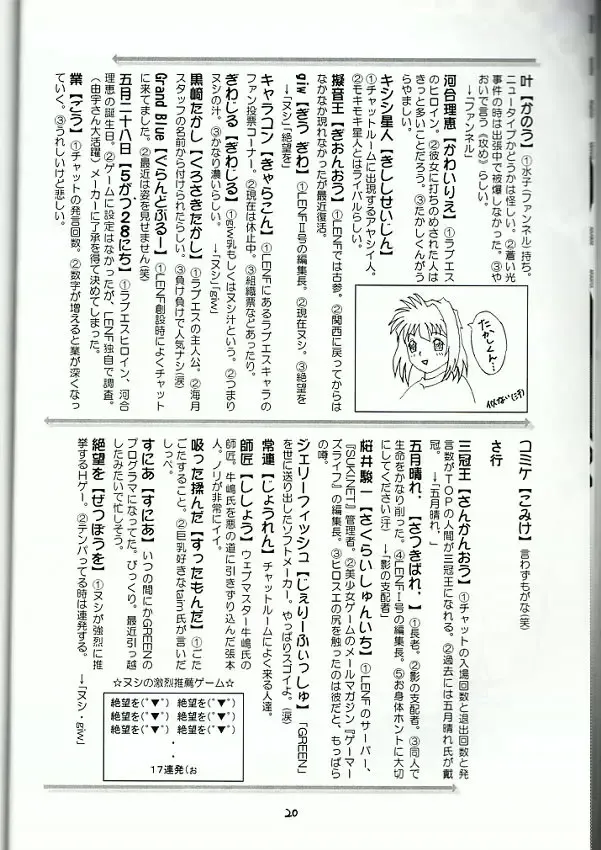 叶【かのう】 ①水子(ファンネル)持ち。
ニュータイプかどうかは怪しい。 ②蒼い光
事件の時は出張中で被爆しなかった。 ③や
おいで言う《攻め》らしい。
→「ファンネル」
河合理恵【かわいりえ】 ①ラブエス
のヒロイン。 ②彼女に打ちのめされた人は
きっと多いことだろう。 ③たかしくんがう
らやましい。
キシン星人【きししせいじん】
①チャットルームに出現するアヤシイ人。
②モキモキ星人とはライバルらしい。
擬音王【ぎおんおう】 ①LENFでは古参。 ②関西に戻ってからは
なかなか現れなかったが最近復活。
giw【ぎう ぎわ】 ①LENFⅡ号の編集長。 ②現在ヌシ。 ③絶望を
→「ヌシ」「絶望を」
キャラコン【きゃらこん】 ①LENFにあるラブエスキャラの
ファン投票コーナー。 ②現在は休止中。 ③組織票などあったり。
ぎわじる【ぎわじる】 ①giw乳もしくはヌシ汁という。 ②つまり
ヌシの汁。 ③かなり濃いらしい。 →「ヌシ」「giw」
黒崎たかし【くろさきたかし】 ①ラブエスの主人公。 ②海月
スタッフの名前から付けられたらしい。 ③負け負けで人気ナシ(涙)
Grand Blue【ぐらんどぶるー】 ①LENF創設時によくチャット
に来てました。 ②最近は姿を見せません(笑)
五月二十八日【5がつ28にち】 ①ラブエスヒロイン、河合
理恵の誕生日。 ②ゲームに設定はなかったが、LENF独自で調査。
(由宇さん大活躍) メーカーに了承を得て決めてしまった。
業【ごう】 ①チャットの発言回数。 ②数字が増えると業が深くなっ
ていく。 ③うれしいけど悲しい。
たかしくん…
似ない(汗)
コミケ【こみけ】 言わずもがな(笑)
さ行
三冠王【さんかんおう】 ①チャットの入場回数と退出回数と発
言数がTOPの人間が三冠王になれる。 ②過去には五月晴れ氏が戴
冠。 →「五月晴れ．」
五月晴れ．【さつきばれ．】 ①長老。 ②影の支配者。 ③同人で
生命をかなり削った。 ④LENFⅠ号の編集長。 ⑤お身体ホントに大切
にしてください(汗) →「影の支配者」
桜井駿一【さくらいしゅんいち】 ①LENFのサーバー、
『SUKINET』管理者。 ②美少女ゲームのメールマガジン『ゲーマー
ズライフ』の編集長。 ③ヒロスエの尻を触ったのは彼だと、もっぱら
の噂。
ジェリーフィッシュ【じぇりーふぃっしゅ】 「GREEN」
を世に送り出したソフトメーカー。やっぱりスゴイよ。(涙)
常連【じょうれん】 チャットルームによく来る人達。
師匠【ししょう】 ウェブマスター牛嶋氏の
師匠。牛嶋氏を悪の道に引きずり込んだ張本
人。ノリが非常にイイ。
吸った揉んだ【すったもんだ】 ①ごた
ごたすること。 ②巨乳好きなtaim氏が言いだ
しっぺ。
すにあ【すにあ】 いつの間にかGREENの
プログラマになってた。びっくり。最近引っ越
したみたいで忙しそう。
絶望を【ぜつぼうを】 ①ヌシが強烈に推
挙するHゲー。 ②テンパってる時は連発する。
→「ヌシ・giw」
☆ヌシの激烈推薦ゲーム☆
絶望を(ﾟ▼ﾟ) 絶望を(ﾟ▼ﾟ)
絶望を(ﾟ▼ﾟ) 絶望を(ﾟ▼ﾟ)
絶望を(ﾟ▼ﾟ) 絶望を(ﾟ▼ﾟ)
・
・
17連発(ぉ
20